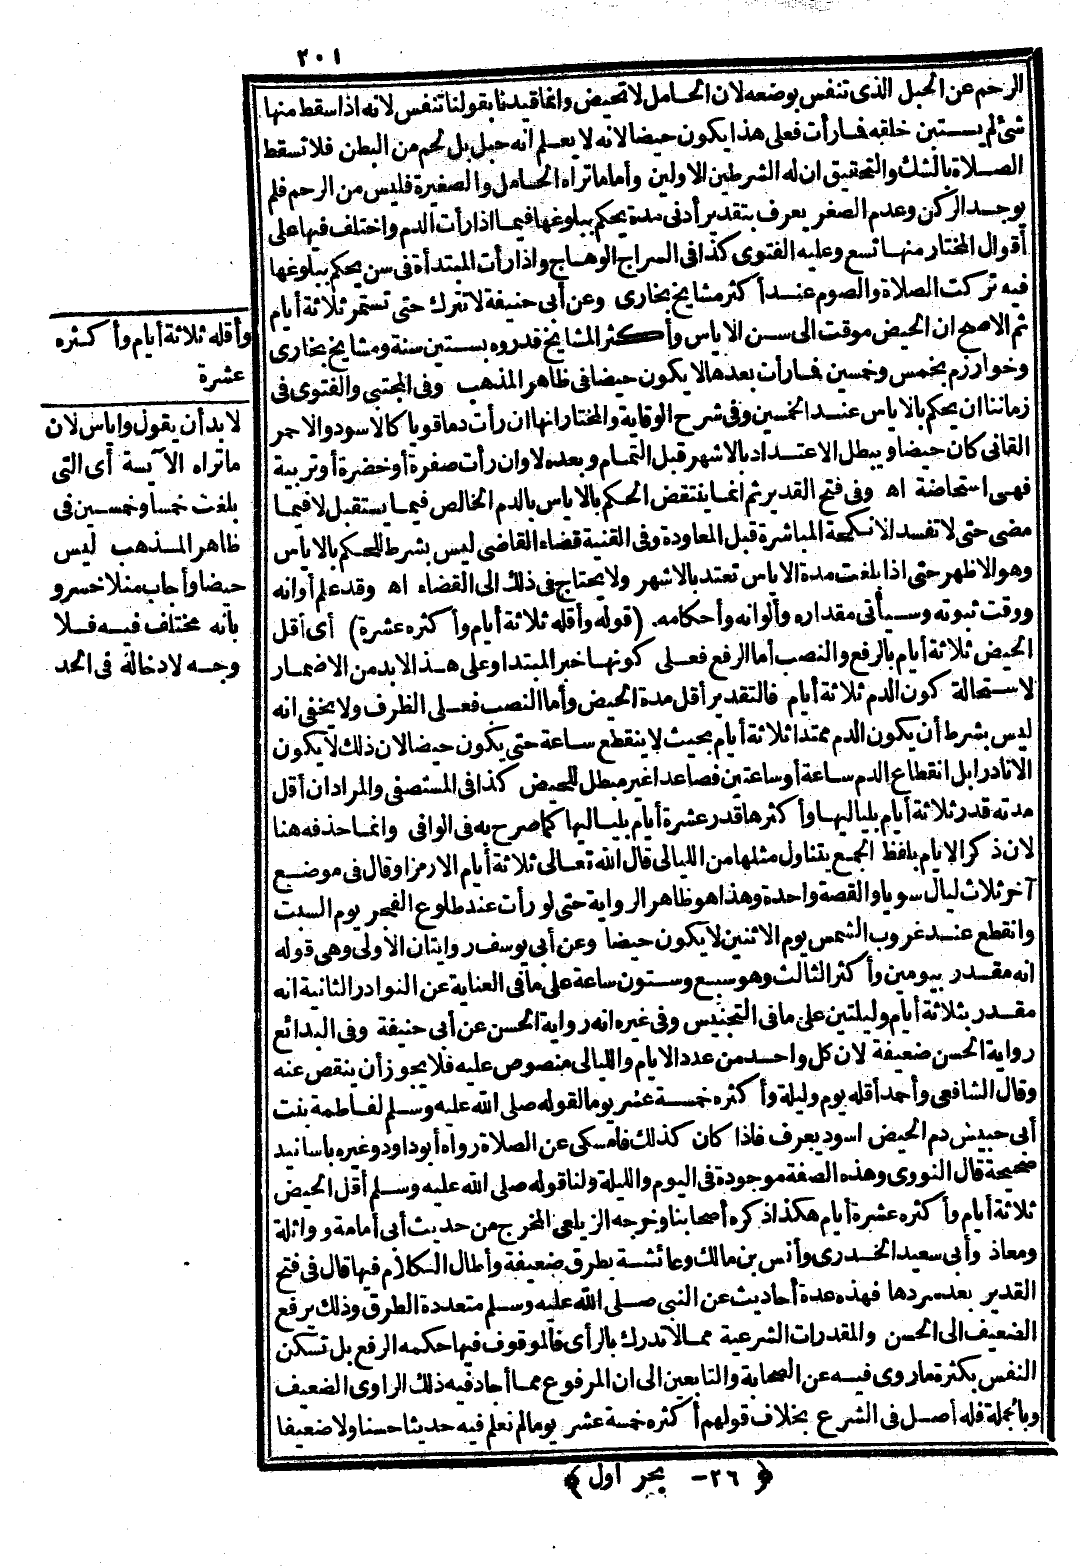 ٢٠١
الرحم عن الحبل الذى تنفس بوضعه لان الحامل لا تحيض وانما قيدنا بقولنا تنفس لانه اذا سقط منها
شئ لم يستبن خلقه فما رأت فعلى هذا يكون حيضا لانه لا يعلم انه حبل بل لحم من البطن فلا تسقط
الصلاة بالشك والتحقيق ان له الشرطين الاولين وأما ما تراه الحامل والصغيرة فليس من الرحم فلم
يوجد الركن وعدم الصغر يعرف بتقدير أدنى مدة يحكم ببلوغها فيما اذا رأت الدم واختلف فيها على
أقوال المختار منها تسع وعليه الفتوى كذا فى السراج الوهاج واذا رأت المبتدأة فى سن يحكم ببلوغها
فيه تركت الصلاة والصوم عند أكثر مشايخ بخارى وعن أبى حنيفة لا تترك حتى تستمر ثلاثة أيام
ثم الاصح ان الحيض موقت الى سن الاياس وأكثر المشايخ قدروه بستين سنة ومشايخ بخارى
وخوارزم بخمس وخمسين فما رأت بعدها لا يكون حيضا فى ظاهر المذهب وفى المجتبى والفتوى فى
زماننا ان يحكم بالاياس عند الخمسين وفى شرح الوقاية والمختار انها ان رأت دما قويا كالاسود والاحمر
القانى كان حيضا ويبطل الاعتداد بالاشهر قبل التمام وبعده لا وان رأت صفرة أو خضرة أو تربية
فهى استحاضة اه وفى فتح القدير ثم انما ينتقض الحكم بالاياس بالدم الخالص فيما يستقبل لا فيما
مضى حتى لا تفسد الانكحة المباشرة قبل المعاودة وفى القنية قضاء القاضى ليس بشرط للحكم بالاياس
وهو الاظهر حتى اذا بلغت مدة الاياس تعتد بالاشهر ولا يحتاج فى ذلك الى القضاء اه وقد علم أوانه
ووقت ثبوته وسيأتى مقداره وألوانه وأحكامه. (قوله وأقله ثلاثة أيام وأكثره عشرة) أى أقل
الحيض ثلاثة أيام بالرفع والنصب أما الرفع فعلى كونها خبر المبتدا وعلى هذا لابد من الاضمار
لاستحالة كون الدم ثلاثة أيام فالتقدير أقل مدة الحيض وأما النصب فعلى الظرف ولا يخفى انه
ليس بشرط أن يكون الدم ممتدا ثلاثة أيام بحيث لا ينقطع ساعة حتى يكون حيضا لان ذلك لا يكون
الا نادرا بل انقطاع الدم ساعة أو ساعتين فصاعدا غير مبطل للحيض كذا فى المستصفى والمراد ان أقل
مدته قدر ثلاثة أيام بلياليها وأكثرها قدر عشرة أيام بلياليها كما صرح به فى الوافى وانما حذفه هنا
لان ذكر الايام بلفظ الجمع يتناول مثلها من الليالى قال الله تعالى ثلاثة أيام الا رمزا وقال فى موضع
آخر ثلاث ليال سويا والقصة واحدة وهذا هو ظاهر الرواية حتى لو رأت عند طلوع الفجر يوم السبت
وانقطع عند غروب الشمس يوم الاثنين لا يكون حيضا وعن أبى يوسف روايتان الاولى وهى قوله
انه مقدر بيومين وأكثر الثالث وهو سبع وستون ساعة على ما فى العناية عن النوادر الثانية انه
مقدر بثلاثة أيام وليلتين على ما فى التجنيس وفى غيره انه رواية الحسن عن أبى حنيفة وفى البدائع
رواية الحسن ضعيفة لان كل واحد من عدد الايام والليالى منصوص عليه فلا يجوز أن ينقص عنه
وقال الشافعى وأحمد أقله يوم وليلة وأكثره خمسة عشر يوما لقوله صلى الله عليه وسلم لفاطمة بنت
أبى حبيش دم الحيض اسود يعرف فاذا كان كذلك فأمسكى عن الصلاة رواه أبو داود وغيره باسانيد
صحيحة قال النووى وهذه الصفة موجودة فى اليوم والليلة ولنا قوله صلى الله عليه وسلم أقل الحيض
ثلاثة أيام وأكثره عشرة أيام هكذا ذكره أصحابنا وخرجه الزيلعى المخرج من حديث أبى أمامة وواثلة
ومعاذ وأبى سعيد الخدرى وأنس بن مالك وعائشة بطرق ضعيفة وأطال الكلام فيها قال فى فتح
القدير بعد سردها فهذه عدة أحاديث عن النبى صلى الله عليه وسلم متعددة الطرق وذلك يرفع
الضعيف الى الحسن والمقدرات الشرعية مما لا تدرك بالرأى فالموقوف فيها حكمه الرفع بل تسكن
النفس بكثرة ما روى فيه عن الصحابة والتابعين الى ان المرفوع مما أجاد فيه ذلك الراوى الضعيف
وبالجملة فله أصل فى الشرع بخلاف قولهم أكثره خمسة عشر يوما لم نعلم فيه حديثا حسنا ولا ضعيفا
وأقله ثلاثة أيام وأكثره
عشرة
لابد أن يقول واياس لان
ما تراه الآيسة أى التى
بلغت خمسا وخمسين فى
ظاهر المذهب ليس
حيضا وأجاب منلا خسرو
بأنه مختلف فيه فلا
وجه لادخاله فى الحد
﴿ ٢٦ – بحر اول ﴾